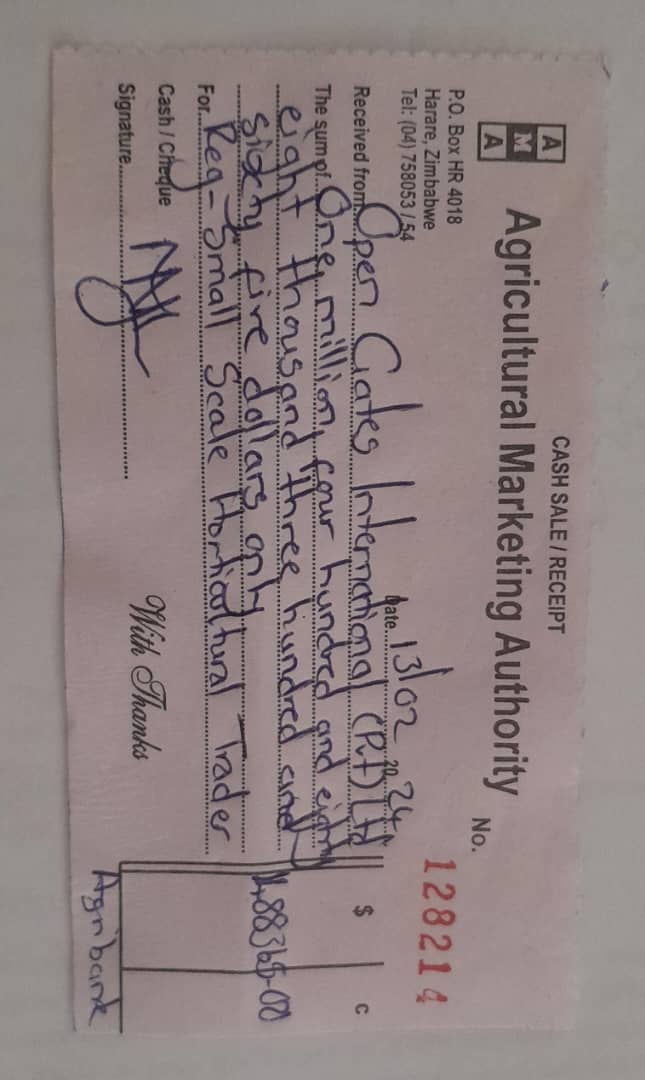 CASH SALE / RECEIPT
A M A
Agricultural Marketing Authority
No. 128214
P.O. Box HR 4018
Harare, Zimbabwe
Tel: (04) 758053 / 54
Date 13/02 2024
Received from Open Gates International (Pvt) Ltd
The sum of One million, four hundred and eighty
eight thousand three hundred and
sixty five dollars only
For Reg - Small Scale Horticultural Trader
$ c
1,488365-00
Cash / Cheque
Signature
With Thanks
Agribank